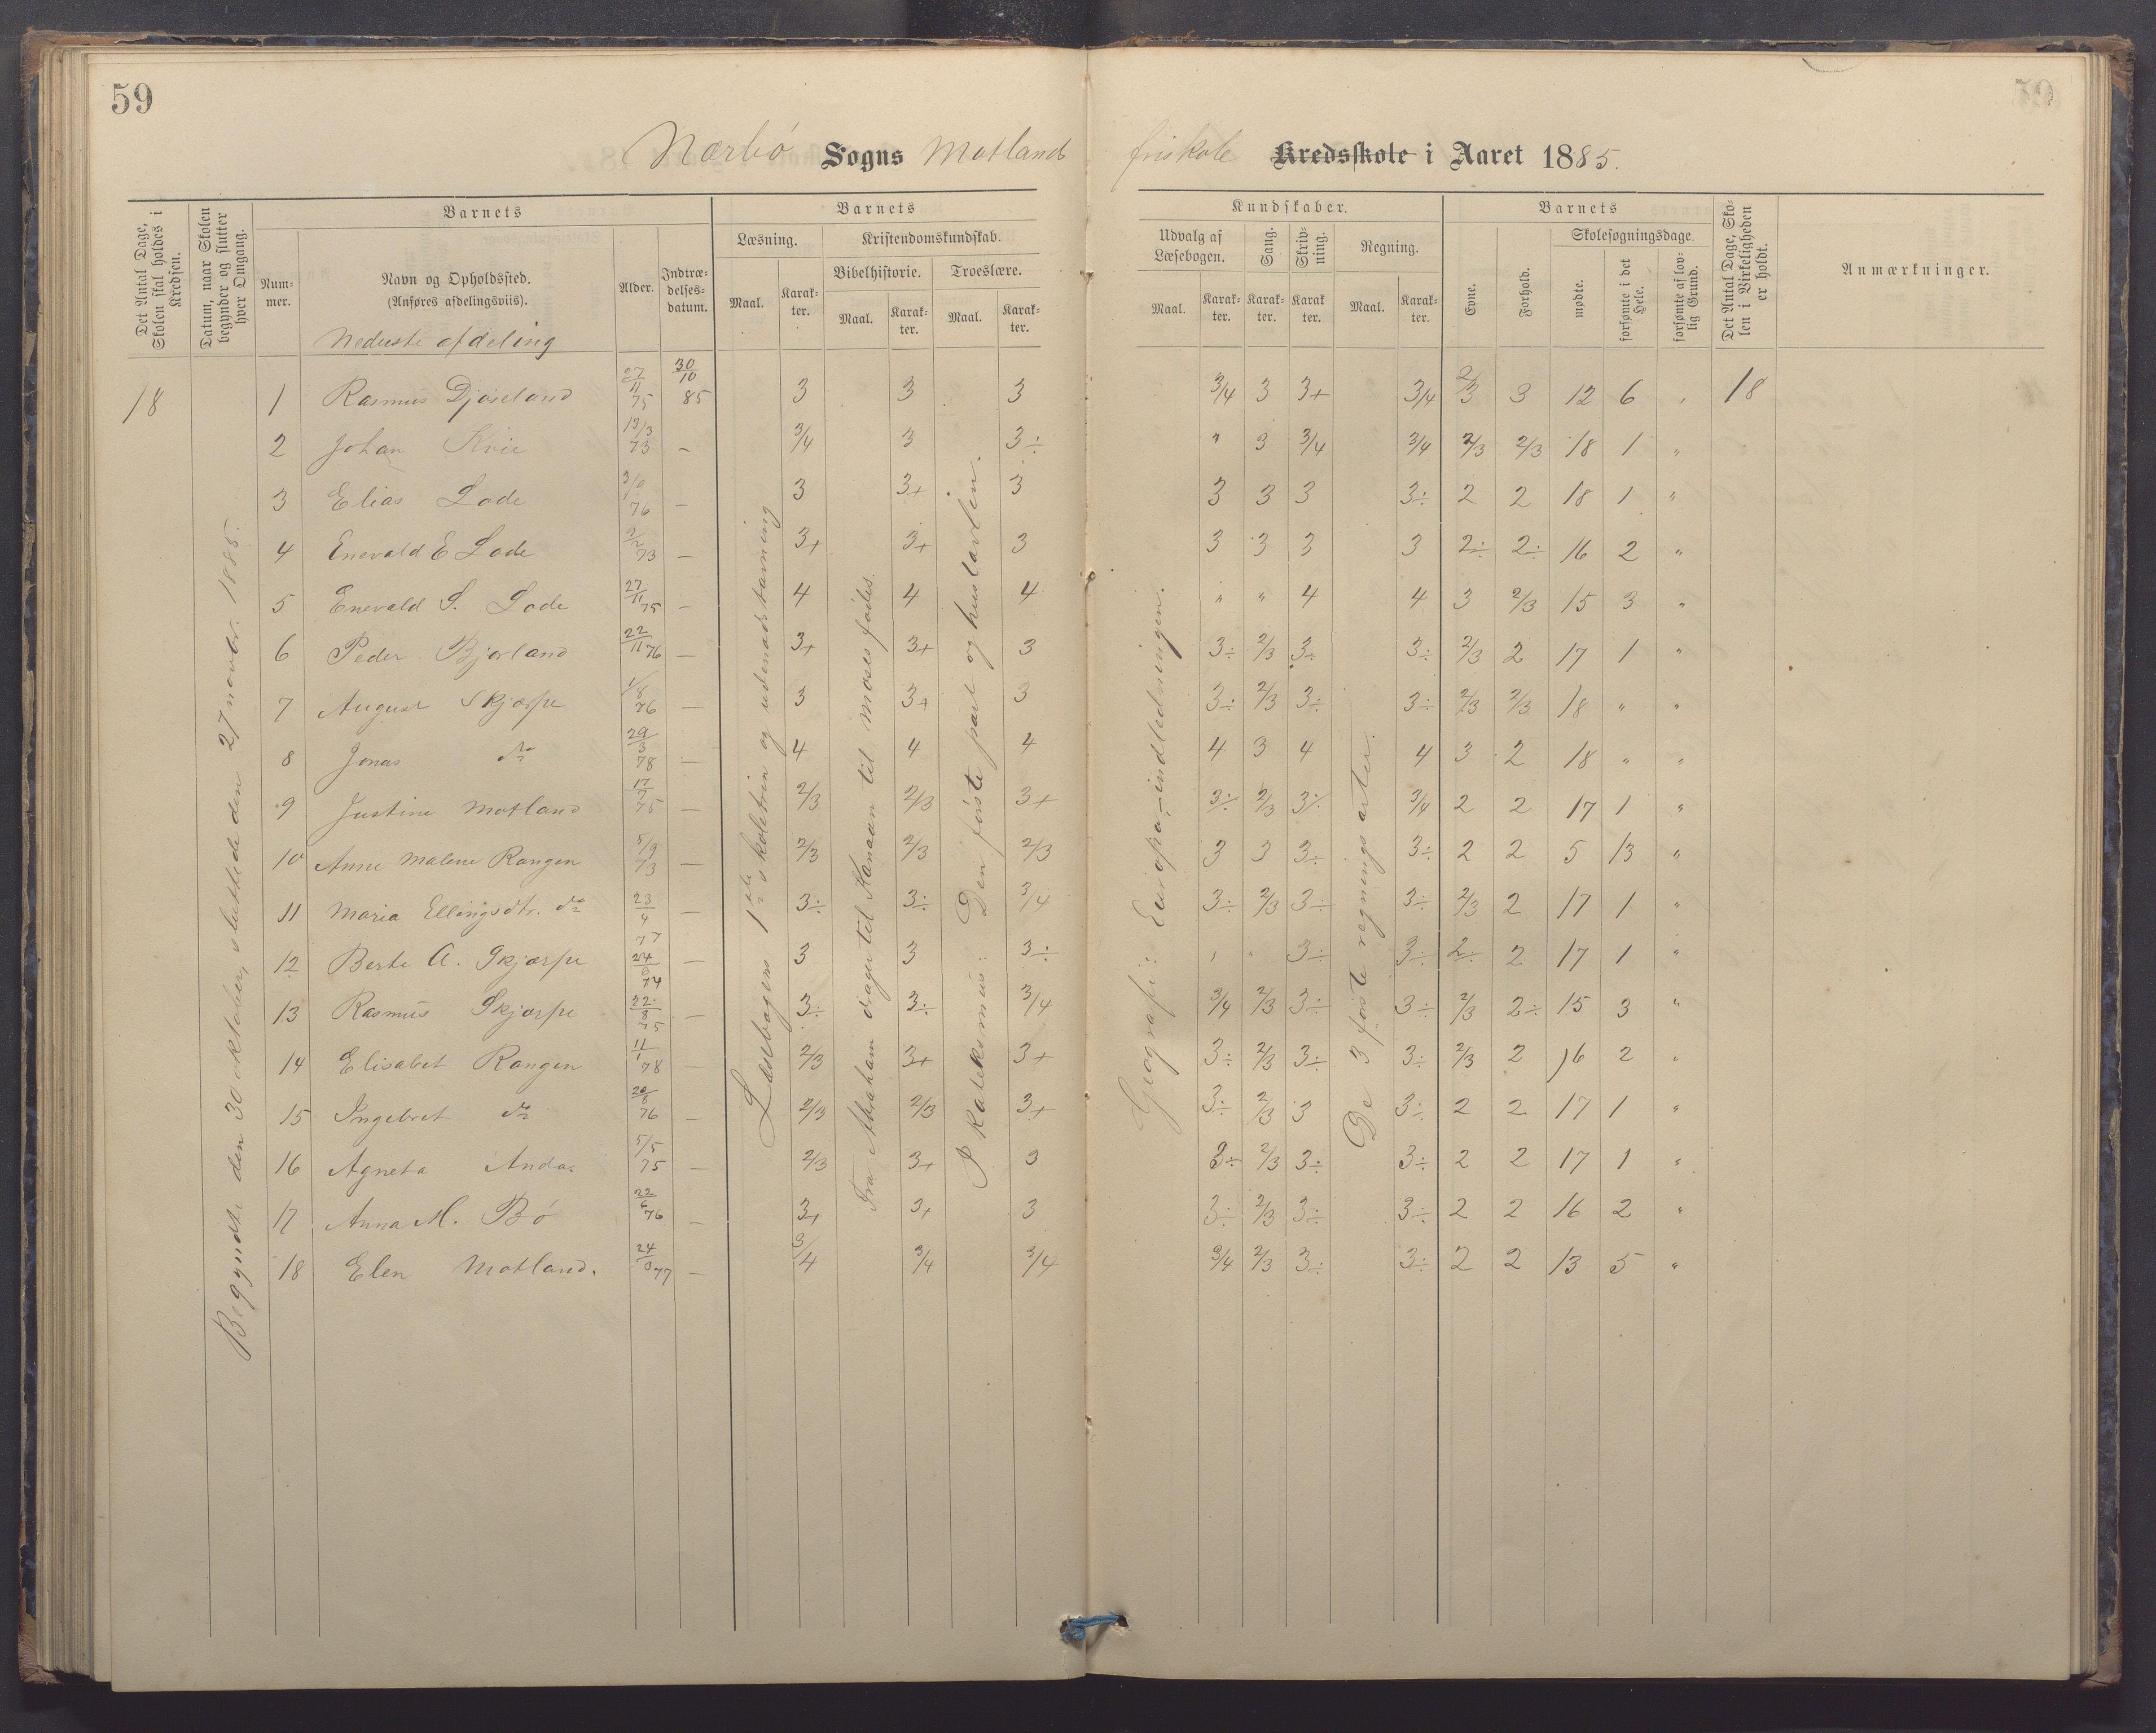 59
Nærbö Sogns Motlands friskole Kredsskole i Aaret 1885.
Det Antal Dage, Skolen skal holdes i Kredsen.
Datum, naar Skolen begynder og slutter hver Omgang.
Barnets
Nummer.
Navn og Opholdssted.
(Anføres afdelingsviis).
Alder.
Indtrædelsesdatum.
Barnets
Læsning.
Maal. Karakter.
Kristendomskundskab.
Bibelhistorie. Troeslære.
Maal. Karakter. Maal. Karakter.
Kundskaber.
Udvalg af Læsebogen.
Maal. Karakter.
Sang. Karakter.
Skrivning. Karakter
Regning.
Maal. Karakter.
Barnets
Evne. Forhold.
Skolesøgningsdage.
mødte. forsømte i det Hele. forsømte af lovlig Grund.
Det Antal Dage, Skolen i Virkeligheden er holdt.
Anmærkninger.
Nederste afdeling
Begyndte den 30 oktober, sluttede den 27 novbr. 1885.
Læsebogens 1ste skoletrin og udenadstavning
Fra Abraham drager til Kanaan til Moses fødes.
I Katekismus: Den første part og hustavlen.
Geografi: Europa-indledningen.
De 3 første regningsarter.
18 1 Rasmus Djøseland 27/11 75 30/10 85 3 3 3 3/4 3 3+ 3/4 2/3 3 12 6 18
2 Johan Kvie 13/3 73 – 3/4 3 3÷ " 3 3/4 3/4 2/3 2/3 18 1 "
3 Elias Lode 76 – 3 3+ 3 3 3 3 3÷ 2 2 18 1 "
4 Enevald E Lode 73 – 3+ 3+ 3 3 3 3 3 2÷ 2÷ 16 2 "
5 Enevald S. Lode 27/11 75 – 4 4 4 " " 4 4 3 2/3 15 3 "
6 Peder Bjorland 22/11 76 – 3+ 3+ 3 3÷ 2/3 3÷ 3÷ 2/3 2 17 1 "
7 August Skjærpe 1/8 76 – 3 3+ 3 3÷ 2/3 3÷ 3÷ 2/3 2/3 18 " "
8 Jonas do 29/3 78 – 4 4 4 4 3 4 4 3 2 18 " "
9 Justine Motland 17/7 75 – 2/3 2/3 3+ 3÷ 2/3 3÷ 3/4 2 2 17 1 "
10 Anne Malene Rangen 5/9 73 – 2/3 2/3 2/3 3 3 3÷ 3÷ 2 2 5 13 "
11 Maria Ellingsdtr. do 23/4 77 – 3÷ 3÷ 3/4 3÷ 2/3 3÷ 3÷ 2/3 2 17 1 "
12 Berte A. Skjærpe 74 – 3 3 3÷ " " 3÷ 3÷ 2÷ 2 17 1 "
13 Rasmus Skjærpe 22/8 75 – 3÷ 3÷ 3/4 3/4 2/3 3÷ 3÷ 2/3 2÷ 15 3 "
14 Elisabet Rangen 11/1 78 – 2/3 3+ 3+ 3÷ 2/3 3÷ 3÷ 2/3 2 16 2 "
15 Ingebret do 20/8 76 – 2/3 2/3 3+ 3÷ 2/3 3 3÷ 2 2 17 1 "
16 Agneta Anda 5/5 75 – 2/3 3+ 3 3÷ 2/3 3÷ 3÷ 2 2 17 1 "
17 Anna M. Bö 22/6 76 – 3+ 3+ 3 3÷ 2/3 3÷ 3÷ 2 2 16 2 "
18 Elen Motland. 77 – 3/4 3/4 3/4 3/4 2/3 3÷ 3÷ 2 2 13 5 "